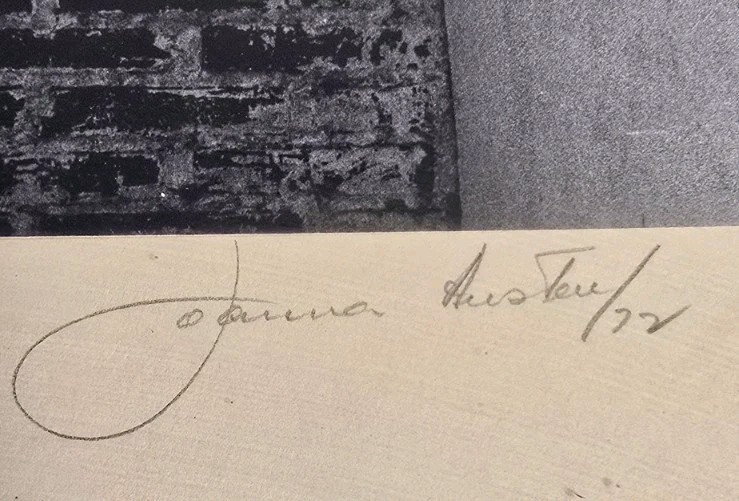 Joanna Austen/22